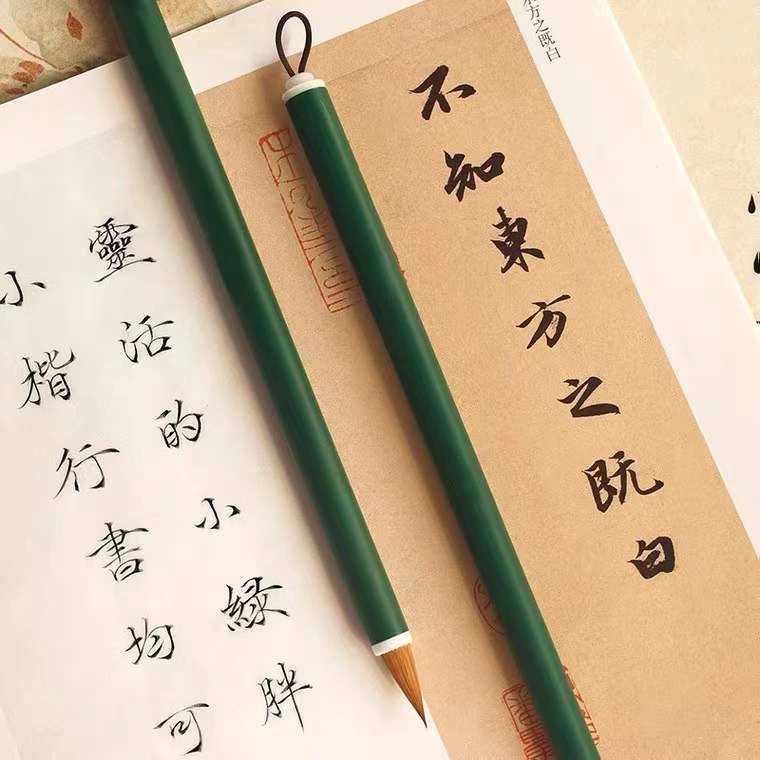 不知東方之既白
方之既白
靈活的小緑胖
小楷行書均可